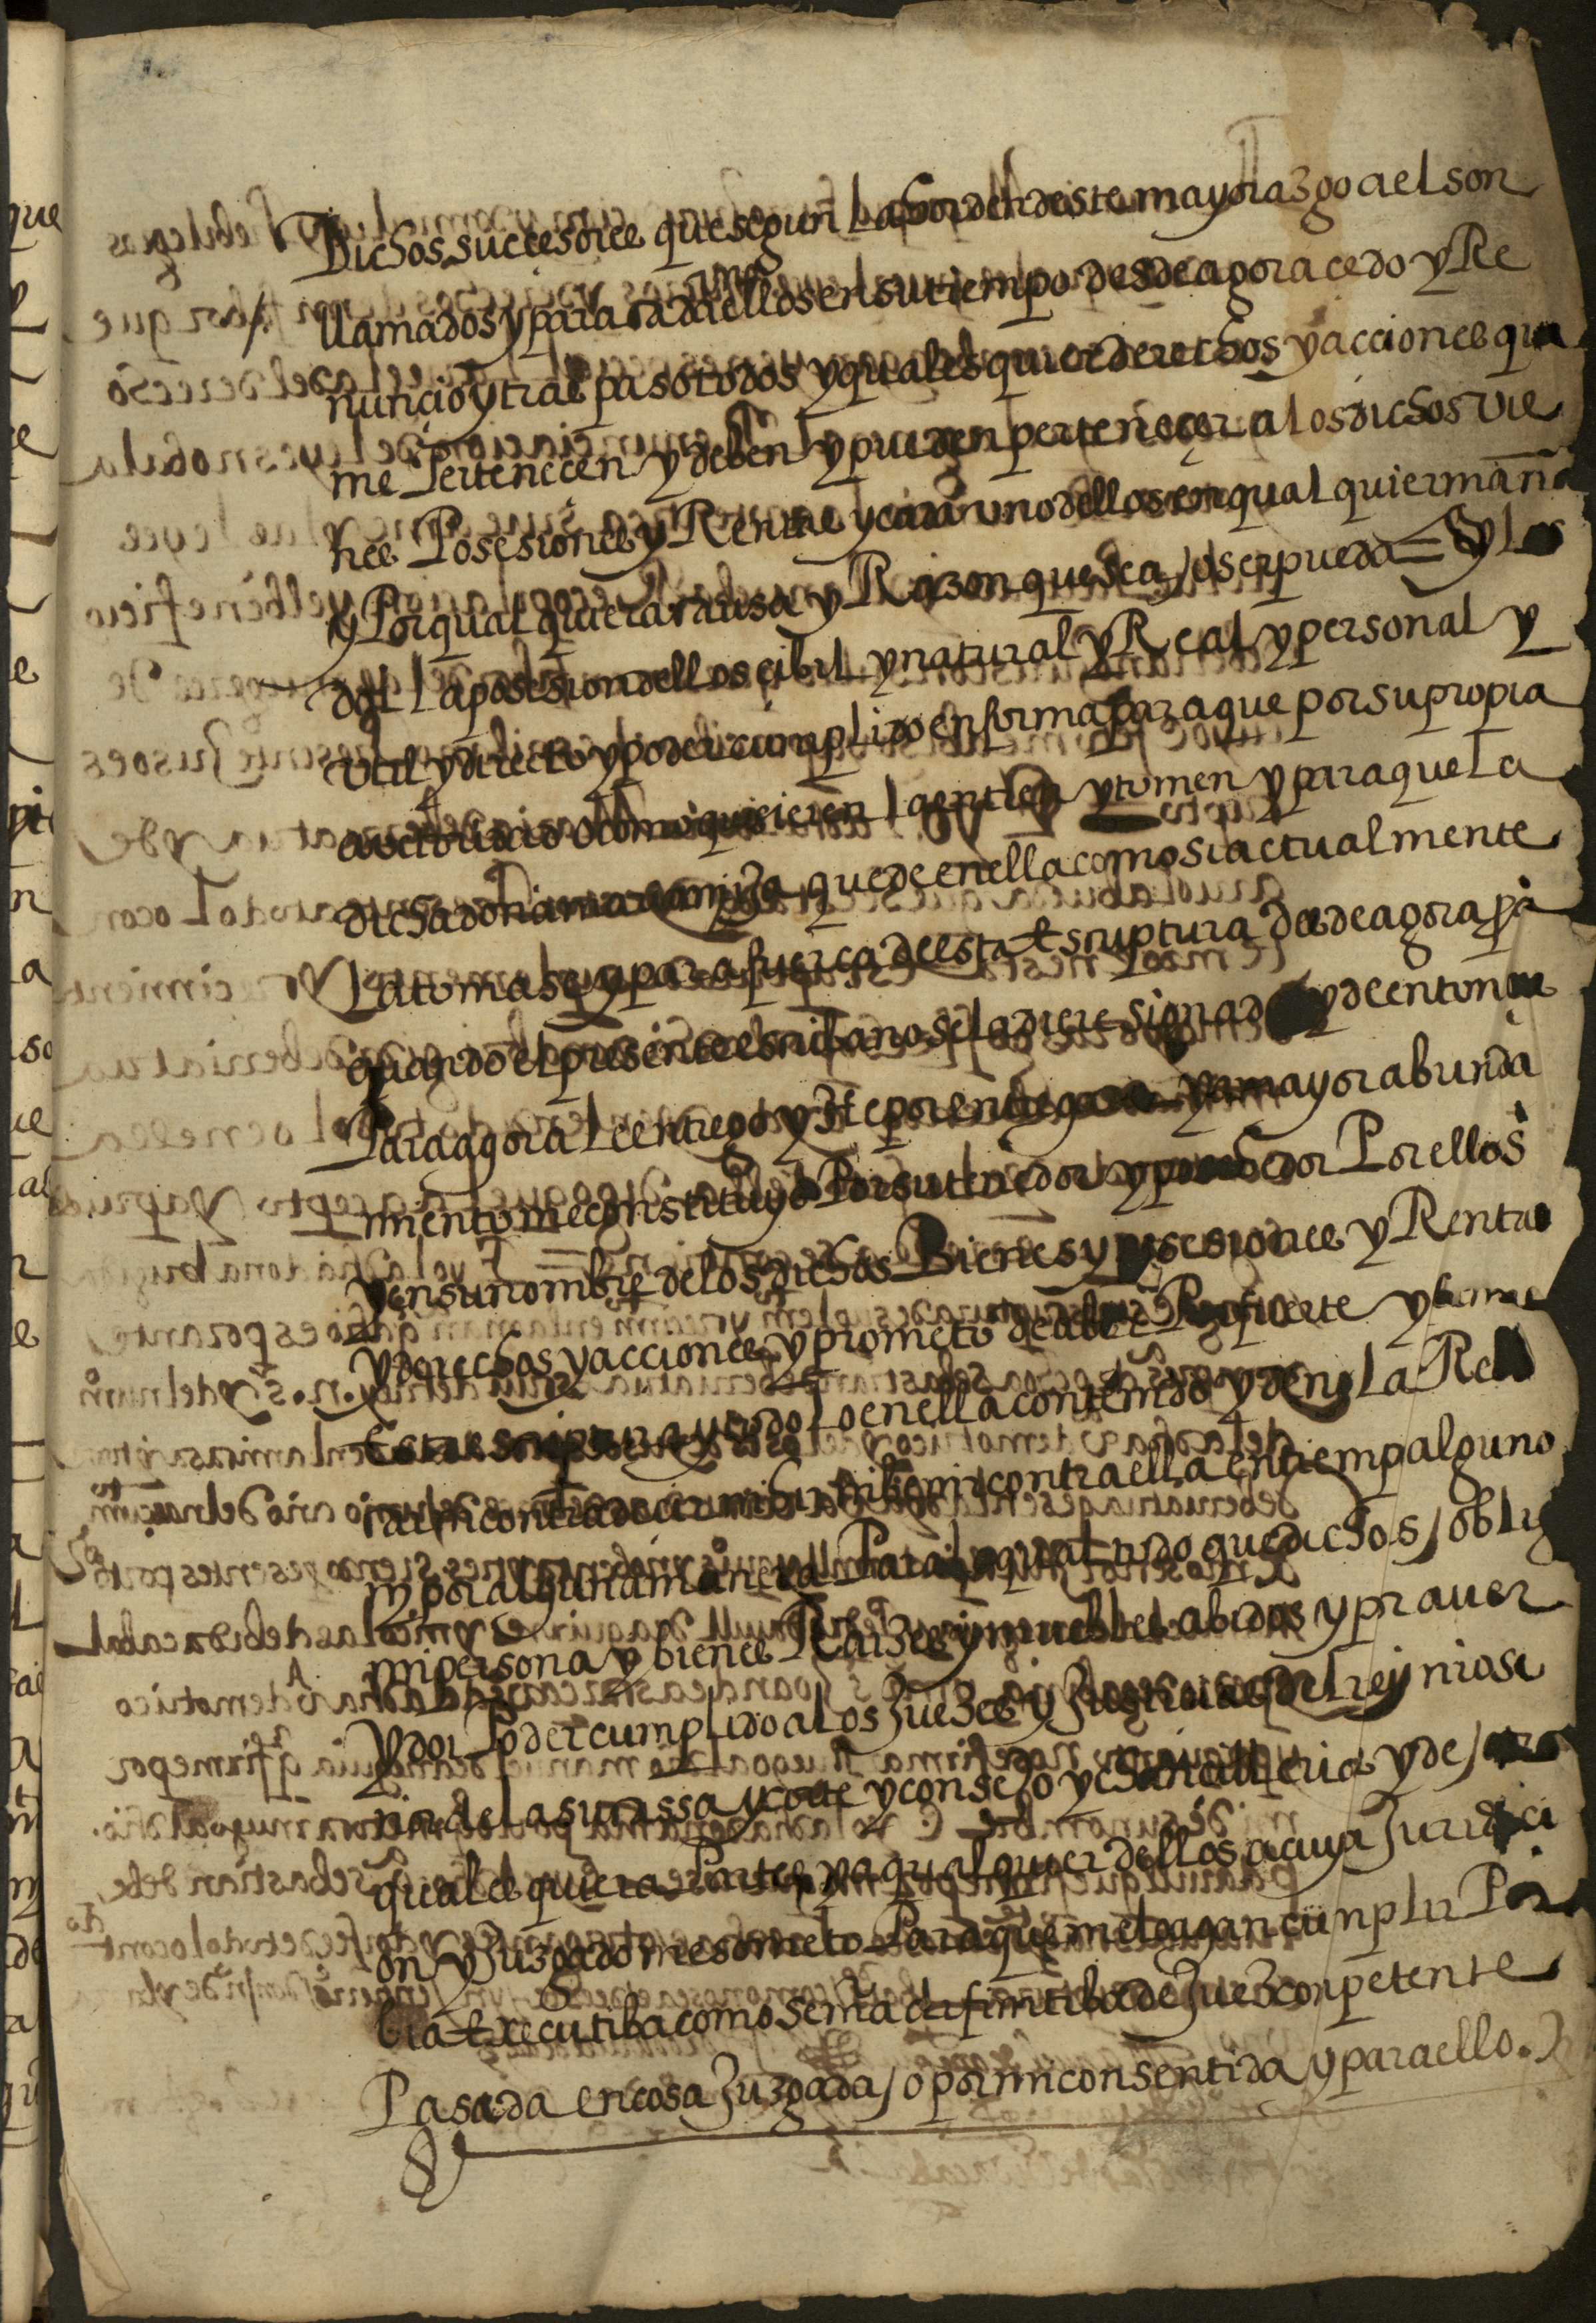 Dichos succesores que segun la horden deste mayorazgo a el son
llamados y para cada uno dellos en su tiempo desde agora cedo y Re
nuncio y traspaso todos y qualesquier derechos y acciones que
me Pertenecen y deben y pueden pertenecer a los dichos vie
nes Posesiones y Rentas y cada uno dellos en qual quier manã
y Por qual quiera causa y Razon que sea / o ser pueda = y les
doi la posesion dellos cibil y natural y Real y personal y
util y direct y poder cumplido en forma para que por su propia
auctoridad o como quisieren la entren y tomen y para que la
dicha dona maria quede en ella como si actualmente
la tomase y para fuerca de esta escriptura desde agora pa
quando el presente escribano se la diere signada y de entonces
Para agora le entrego y mayor abunda
miento me constituyo Por su tenedor y poseedor Por ellos
y en su nombre de los dichos Bienes y posesiones y Rentas
y derechos y acciones y prometo de aber Por firme
Esta escriptura y todo lo en ella contenido y de no la Re
ni contra ella en tiemp alguno
ni por alguna manera Para lo qual todo que dicho es / oblig
mi persona y bienes Raizes y muebles abidos y por aver
y doi Poder cumplido a los Juezes y Justicias del rey n̄ro se
ñor de la su cassa y corte y consejo y chancilleria y de
quales quiera Partes y a qual quier dellos a cuya Juridici
on y Juzgado me someto Para que me lo agan cumplir Por
bia Executiba como sentã difinitiba de Juez conpetente
Pasada en cosa Juzgada / o por mi consentida y para ello.